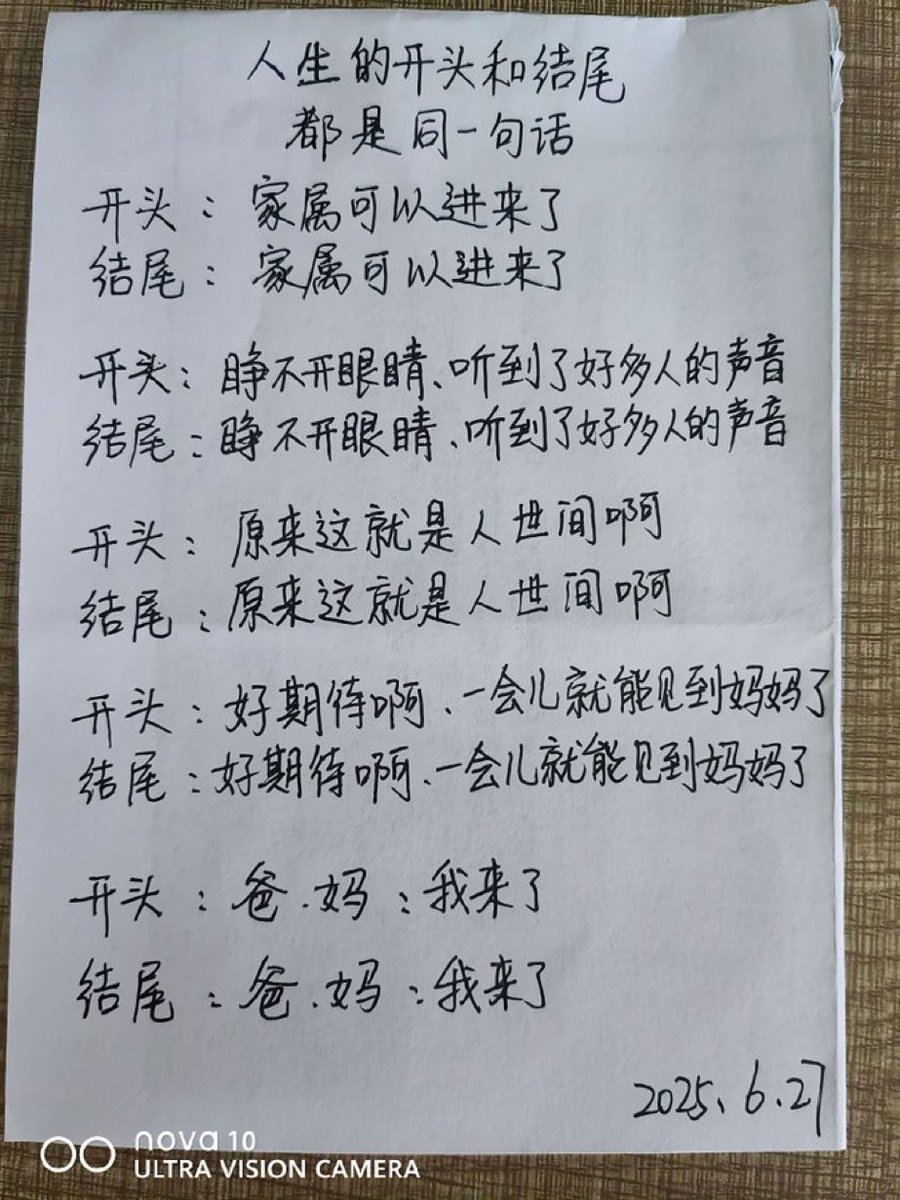 人生的开头和结尾
都是同一句话
开头：家属可以进来了
结尾：家属可以进来了
开头：睁不开眼睛、听到了好多人的声音
结尾：睁不开眼睛、听到了好多人的声音
开头：原来这就是人世间啊
结尾：原来这就是人世间啊
开头：好期待啊、一会儿就能见到妈妈了
结尾：好期待啊、一会儿就能见到妈妈了
开头：爸、妈：我来了
结尾：爸、妈：我来了
2025、6、27
nova 10
ULTRA VISION CAMERA